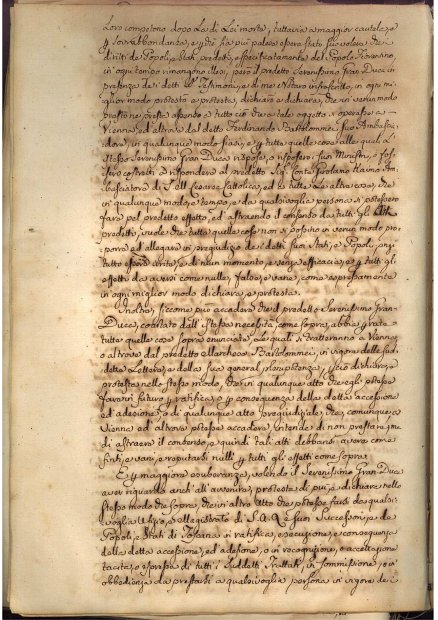 Loro competono dopo la di Lei morte, tuttavia a maggior cautela, e
e sovrabbondanza, e più sia palese essere stato suo volere che i
diritti de Popoli, e Stati predetti, e specificatamente del Popolo Fiorentino,
in ogni tempo rimangono illesi, però il predetto Serenissimo Gran Duca in
presenza de i detti SS. Testimoni, e di me Notaro infrascritto, in ogni mi-
glior modo protestò e protesta, dichiarò e dichiara, che in verun modo
prestò ne presta assenso a tutto ciò che a tale oggetto si operasse a
Vienna, ed altrove dal detto Ferdinando Bartolommei suo Ambascia-
dore, in qualunque modo siasi, e a tutte quelle cose alle quali l'
Stesso Serenissimo Gran Duca rispose, o risposero i suoi Ministri, o fos-
sero costretti a rispondere al predetto Sig.r Conte Girolamo Am-
basciatore di S. M. Cesarea Cattolica, ed a tutte le altre cose, che
in qualunque modo, e tempo, e da qualsivoglia persona si potessero
fare pel predetto effetto, ed astraendo il consenso da tutti gli Atti
predetti, vuole che tutte quelle cose non si possino in verun modo pro-
porre ed allegare in pregiudizio de i detti suoi Stati, e Popoli, anzi
tutto essere irrito, e di niun momento, e senza efficacia, e a tutti gli
effetti da aversi come nulle, false, e vane, come espressamente
in ogni miglior modo dichiara, e protesta.
Inoltre, siccome può accadere che il predetto Serenissimo Gran-
Duca, coartato dall' istessa necessità, come sopra, abbia grate
tutte quelle cose sopra enunciate, le quali si tratteranno a Vienna,
o altrove dal predetto Marchese Bartolommei, in vigore delle sud-
dette Lettere, e della sua general plenipotenza, perciò dichiara, e
protesta nello stesso modo, che in qualunque atto che egli potesse
fare in futuro di ratifica, o per conseguenza della detta accessione
ed adesione, o di qualunque atto pregiudiziale che, comunque a
Vienna ed altrove potesse accadere, intende di non prestare, ma
di astraere il consenso, e quindi tali atti debbansi avere come
finti, e vani, e reputarsi nulli a tutti gli effetti come sopra.
E a maggiore esuberanza, volendo il Serenissimo Gran Duca
aver riguardo anch' all' avvenire, protesta di più, e dichiara nello
stesso modo che sopra, che in altro Atto che potesse farsi da qualsi-
voglia Ufizio, e Magistrato di S. A. R. e suoi Successori, e da
Popoli, e Stati di Toscana in ratifica, esecuzione, e conseguenza
della detta accessione, ed adesione, o in recognizione, o accettazione
tacita, o espressa di tutti i suddetti Trattati, in sommissione, o in
obbedienza da prestarsi a qualsivoglia persona in vigore dei